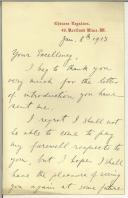 Chinese Legation.
49, Portland Place. W.
Jan. 8th 1913
Your Excellency,
I beg to thank you
very much for the letter
of introduction you have
sent me.
I regret I shall not
be able to come to pay
my farewell respects to
you, but I hope I shall
have the pleasure of seeing
you again at some future